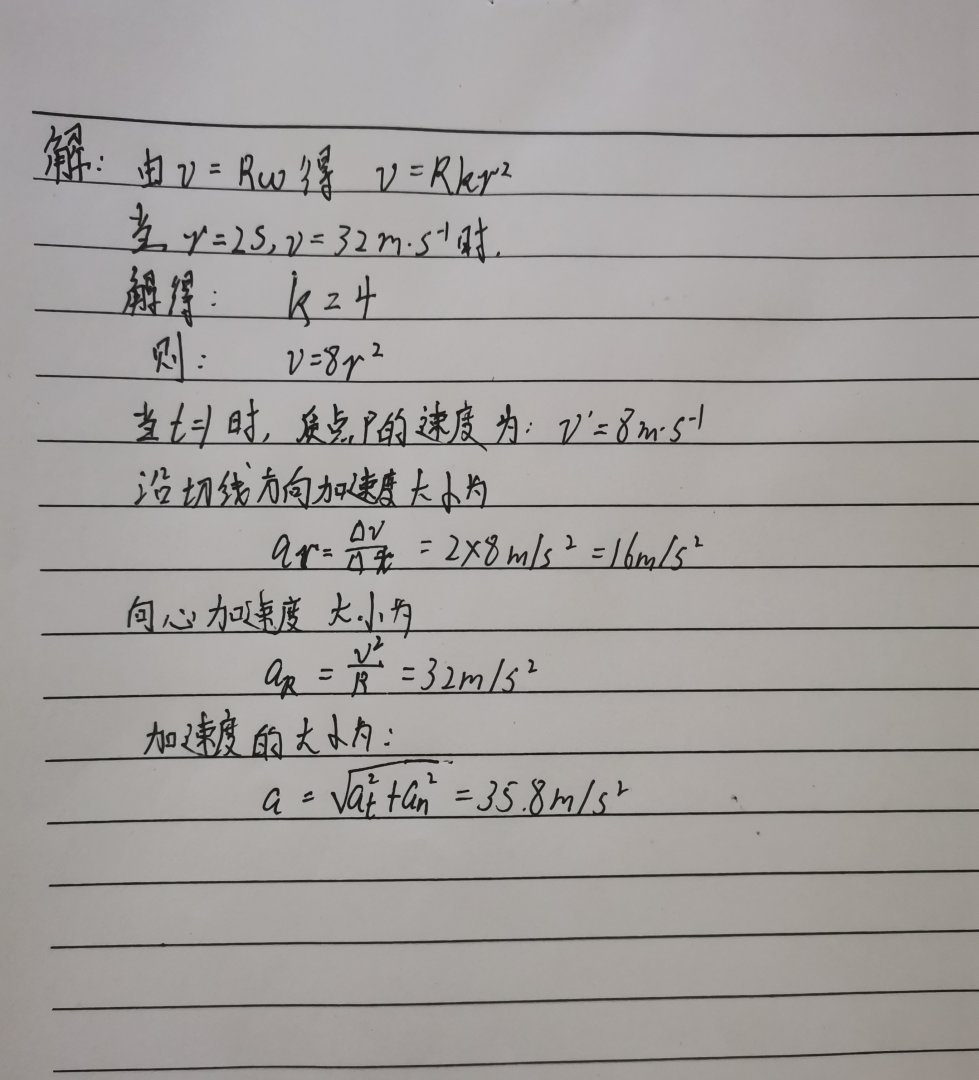 解: 由 v=Rω 得 v=Rkr²
当 r=2s, v=32m·s⁻¹ 时.
解得: k=4
则: v=8r²
当 t=1 时, 质点P的速度为: v'=8m·s⁻¹
沿切线方向加速度大小为
ar=Δv/Δt=2×8m/s²=16m/s²
向心加速度大小为
aR=v²/R=32m/s²
加速度的大小为:
a=√(at²+an²)=35.8m/s²